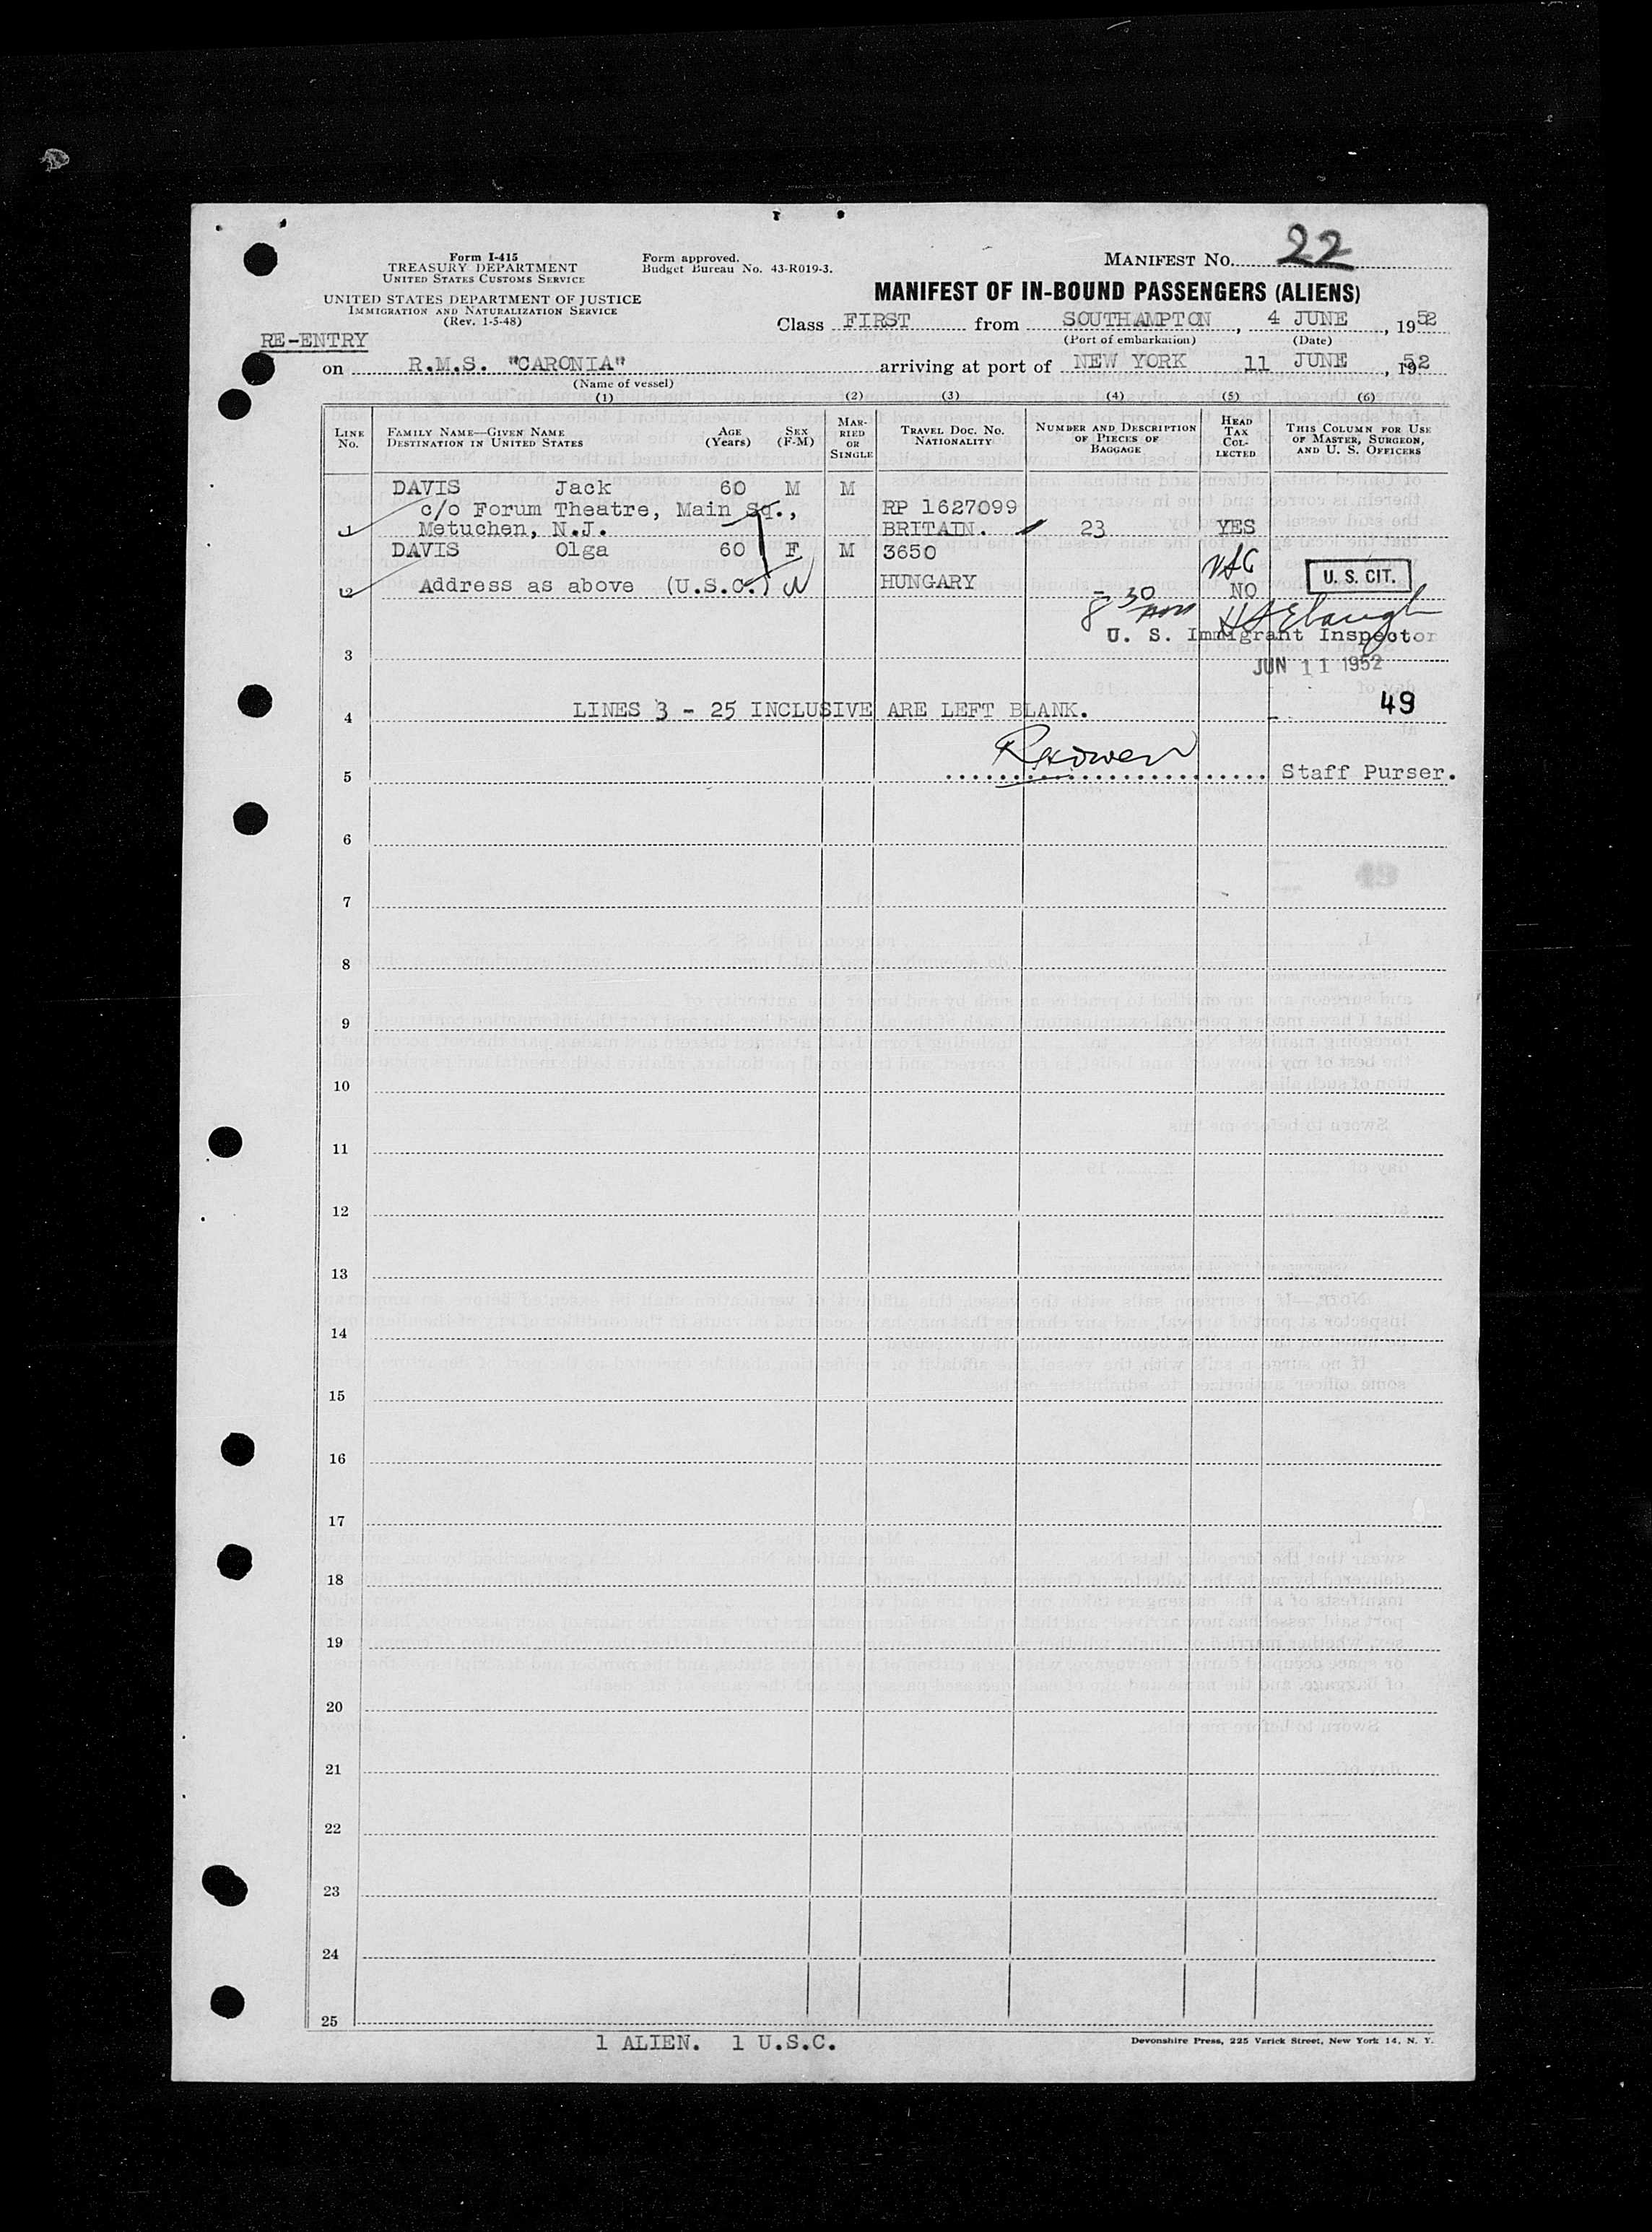 22
Form I-415
TREASURY DEPARTMENT
UNITED STATES CUSTOMS SERVICE
Form approved.
Budget Bureau No. 43-R019-3.
MANIFEST NO.
UNITED STATES DEPARTMENT OF JUSTICE
IMMIGRATION AND NATURALIZATION SERVICE
(Rev. 1-5-48)
MANIFEST OF IN-BOUND PASSENGERS (ALIENS)
Class FIRST from SOUTHAMPTON, 4 JUNE, 1952
(Port of embarkation) (Date)
RE-ENTRY
on R.M.S. "CARONIA" arriving at port of NEW YORK 11 JUNE, 1952
(Name of vessel)
(1) (2) (3) (4) (5) (6)
LINE NO.
FAMILY NAME—GIVEN NAME
DESTINATION IN UNITED STATES
AGE (Years)
SEX (F-M)
MARRIED OR SINGLE
TRAVEL DOC. NO.
NATIONALITY
NUMBER AND DESCRIPTION OF PIECES OF BAGGAGE
HEAD TAX COLLECTED
THIS COLUMN FOR USE OF MASTER, SURGEON, AND U. S. OFFICERS
DAVIS Jack 60 M M
c/o Forum Theatre, Main Sq., RP 1627099
1 Metuchen, N.J. BRITAIN. 23 YES
DAVIS Olga 60 F M 3650
2 Address as above (U.S.C.) HUNGARY - NO U. S. CIT.
8 30 am
U. S. Immigrant Inspector
3 JUN 11 1952
4 LINES 3 - 25 INCLUSIVE ARE LEFT BLANK. - 49
5 Staff Purser.
6
7
8
9
10
11
12
13
14
15
16
17
18
19
20
21
22
23
24
25
1 ALIEN. 1 U.S.C.
Devonshire Press, 225 Varick Street, New York 14, N. Y.